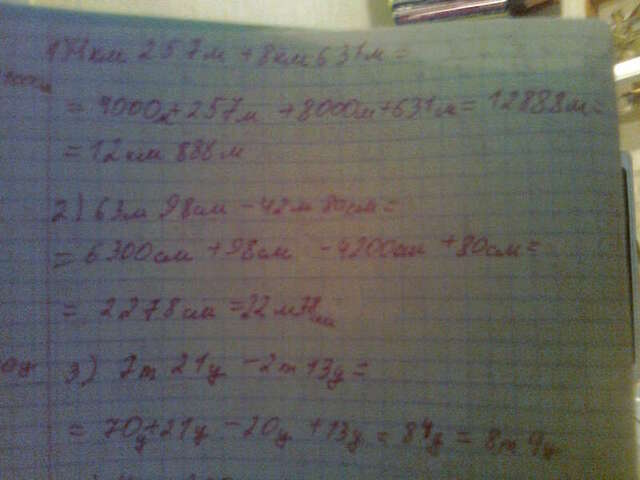 1) 4км 257м + 8км 631м =
= 4000м + 257м + 8000м + 631м = 12888м =
= 12км 888м
2) 63м 98см - 42м 80см =
= 6300см + 98см - 4200см + 80см =
= 2278см = 22м 78см
3) 7т 21ц - 2т 13ц =
= 70ц + 21ц - 20ц + 13ц = 84ц = 8т 4ц